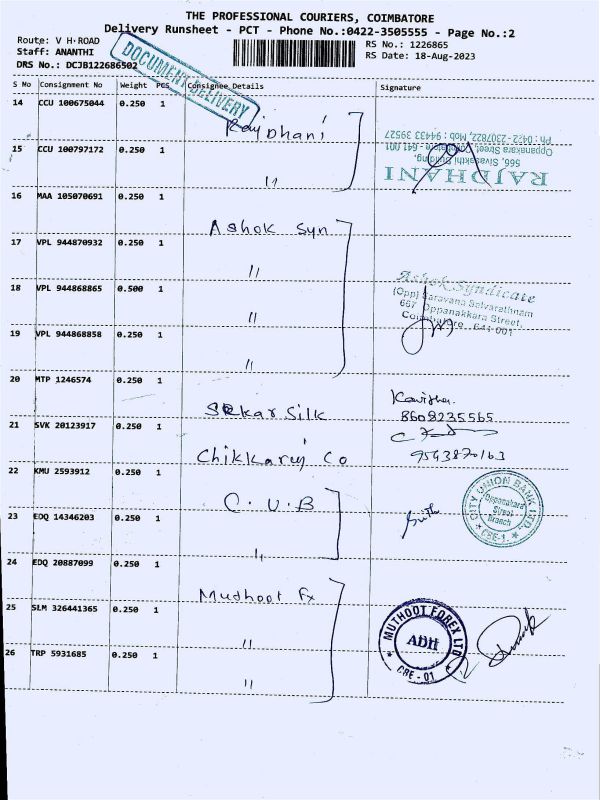 THE PROFESSIONAL COURIERS, COIMBATORE
Delivery Runsheet - PCT - Phone No.:0422-3505555 - Page No.:2
Route: V H-ROAD
Staff: ANANTHI
DRS No.: DCJB122686502
RS No.: 1226865
RS Date: 18-Aug-2023
DOCUMENT DELIVERY
S No Consignment No Weight PCS Consignee Details Signature
14 CCU 100675044 0.250 1 Rajdhani
15 CCU 100797172 0.250 1 "
RAJDHANI
566, Sivasakthi Building,
Oppanakara Street, Coimbatore 641 001
Ph : 0422-2307822, Mob : 94433 39527
16 MAA 105070691 0.250 1 Ashok Syn
17 VPL 944870932 0.250 1 "
18 VPL 944868865 0.500 1 "
19 VPL 944868858 0.250 1 "
Ashok Syndicate
(Opp) Saravana Selvarathnam
667 Oppanakkara Street,
Coimbatore - 641 001
20 MTP 1246574 0.250 1 Sekar Silk
Kavitha.
8608235565
21 SVK 20123917 0.250 1 Chikkaruj Co
9543870163
22 KMU 2593912 0.250 1 C.U.B
23 EDQ 14346203 0.250 1 "
CITY UNION BANK LTD.,
Oppanakara
Street
Branch
CBE-1
24 EDQ 20887099 0.250 1 Muthoot Fx
25 SLM 326441365 0.250 1 "
26 TRP 5931685 0.250 1 "
MUTHOOT FOREX LTD
ADH
CBE - 01